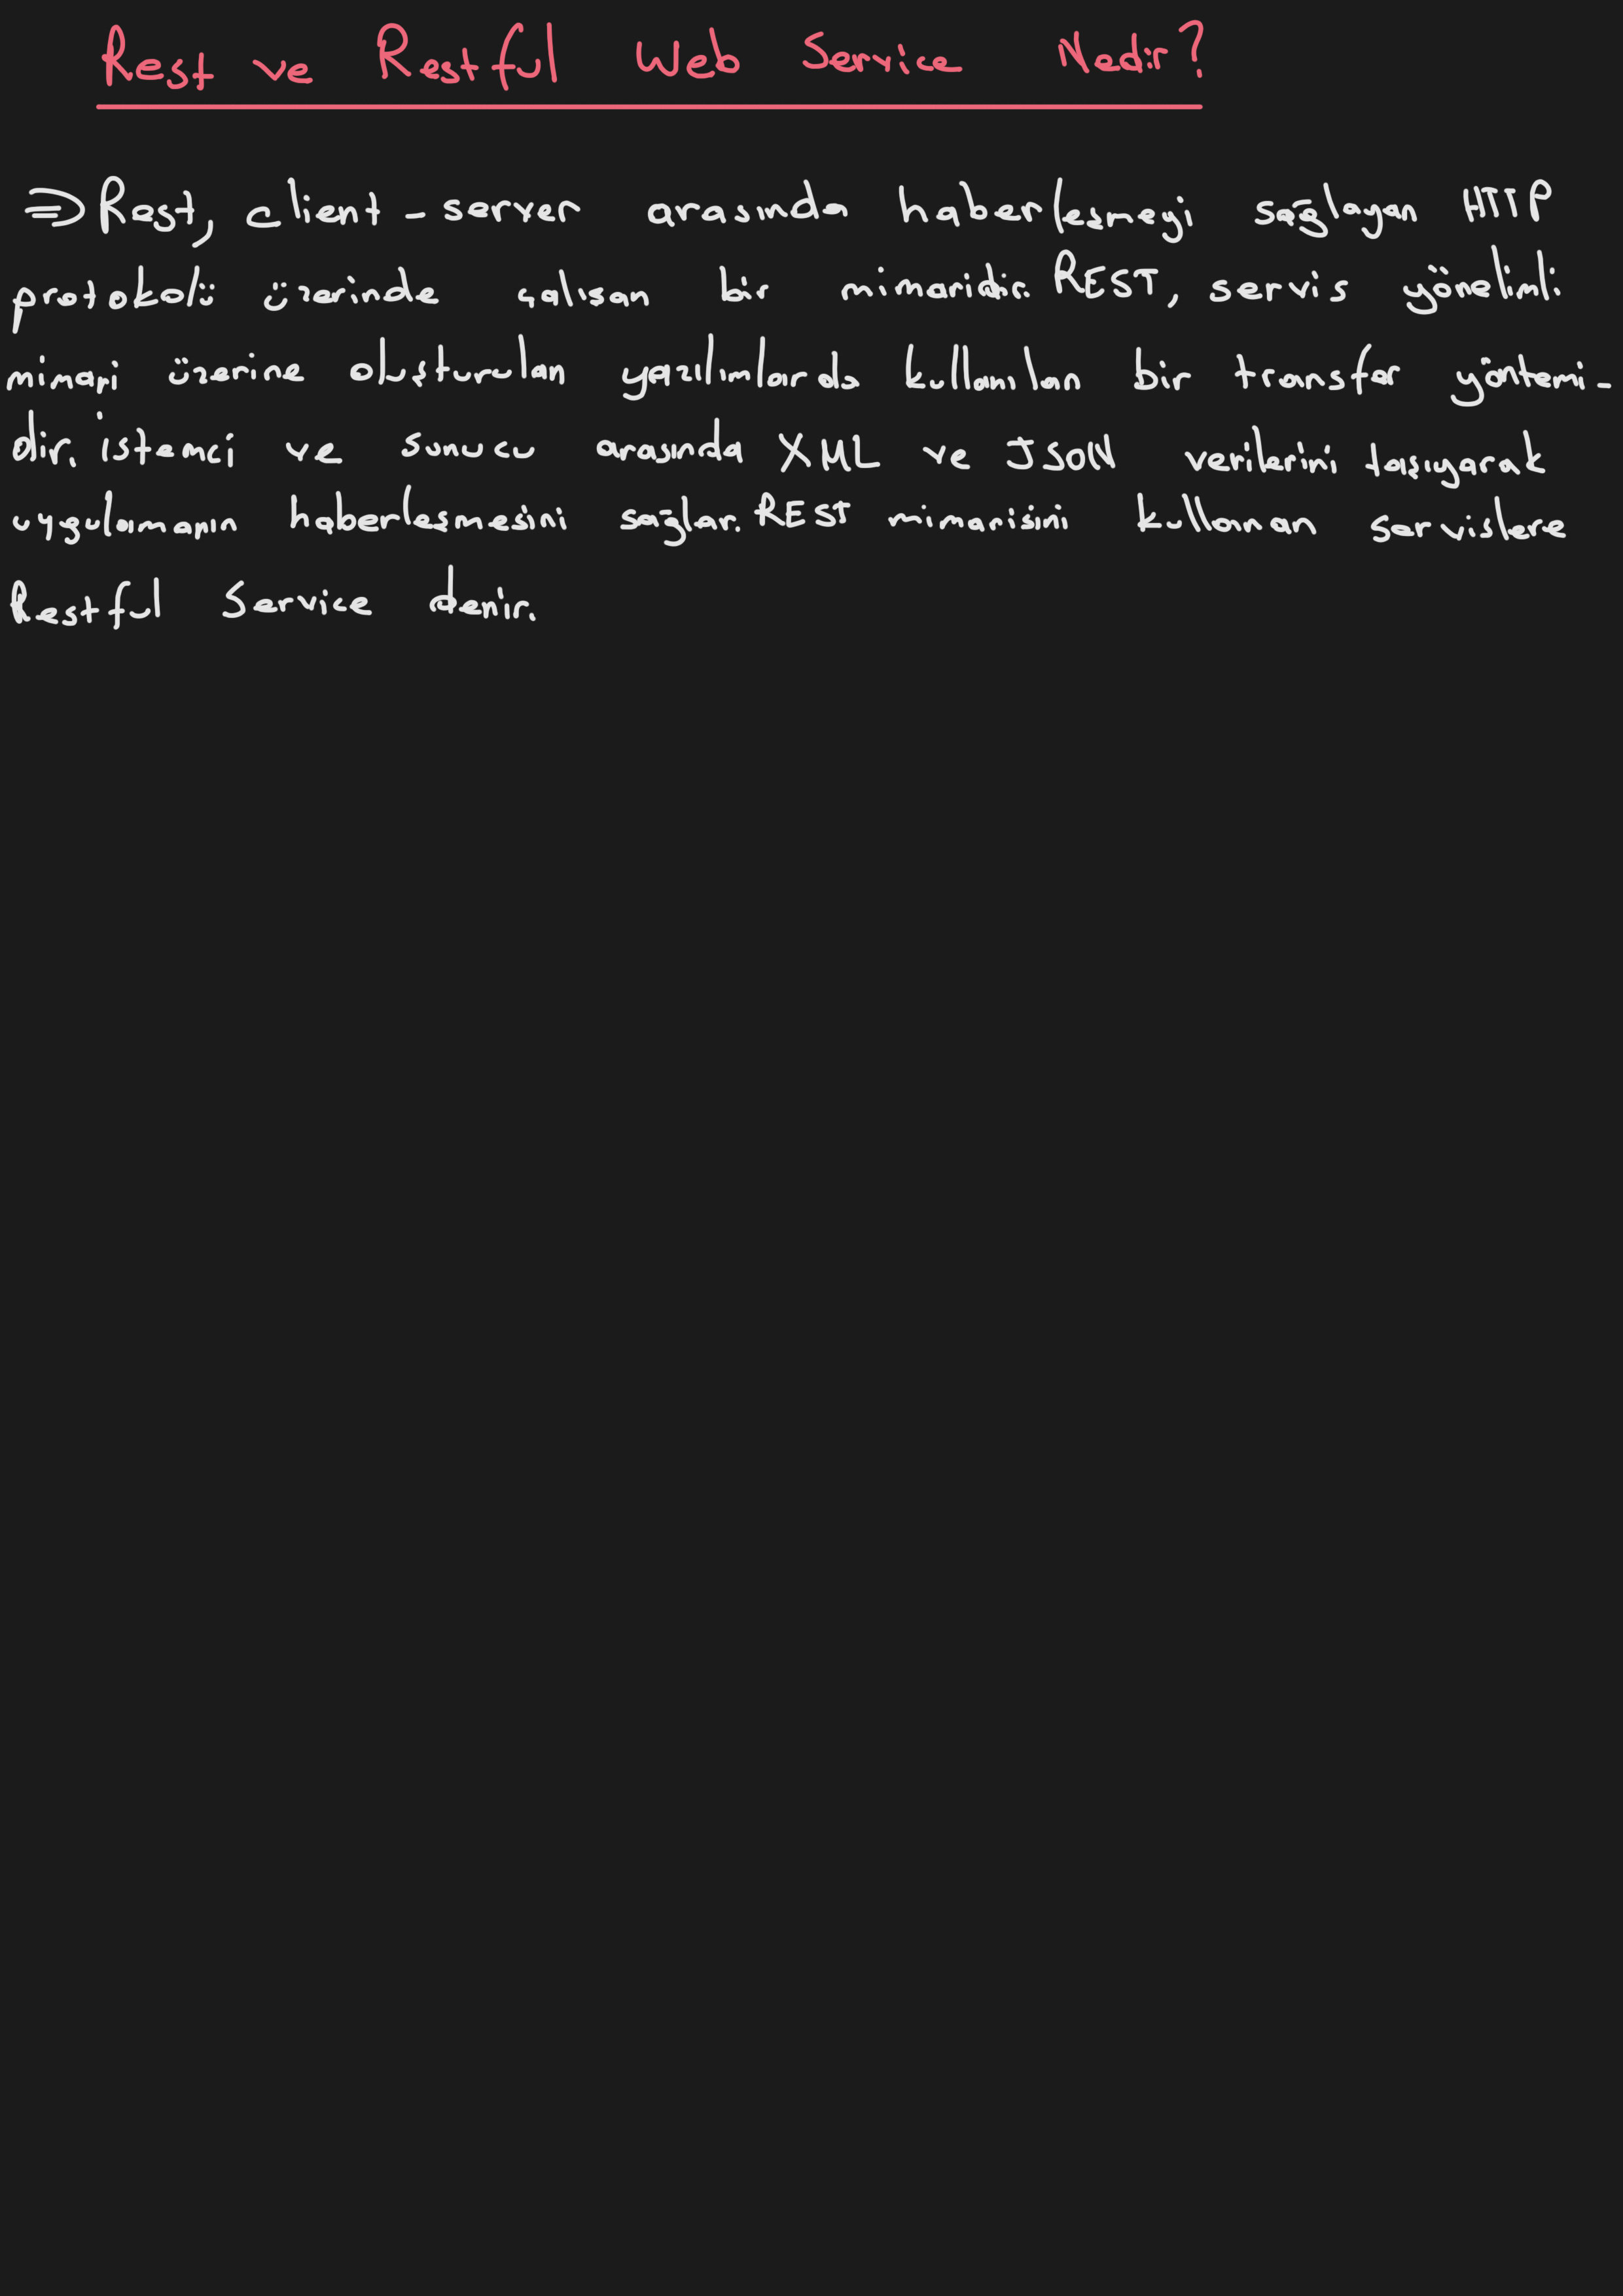 Rest ve Restful Web Service Nedir?
⇒ Rest, client-server arasından haberleşmeyi sağlayan HTTP
protokolü üzerinde çalışan bir mimaridir. REST, servis yönelimli
mimari üzerine oluşturulan yazılımlarda kullanılan bir transfer yöntemi-
dir. İstemci ve sunucu arasında XML ve JSON verilerini taşıyarak
uygulamanın haberleşmesini sağlar. REST mimarisini kullanan servislere
Restful Service denir.